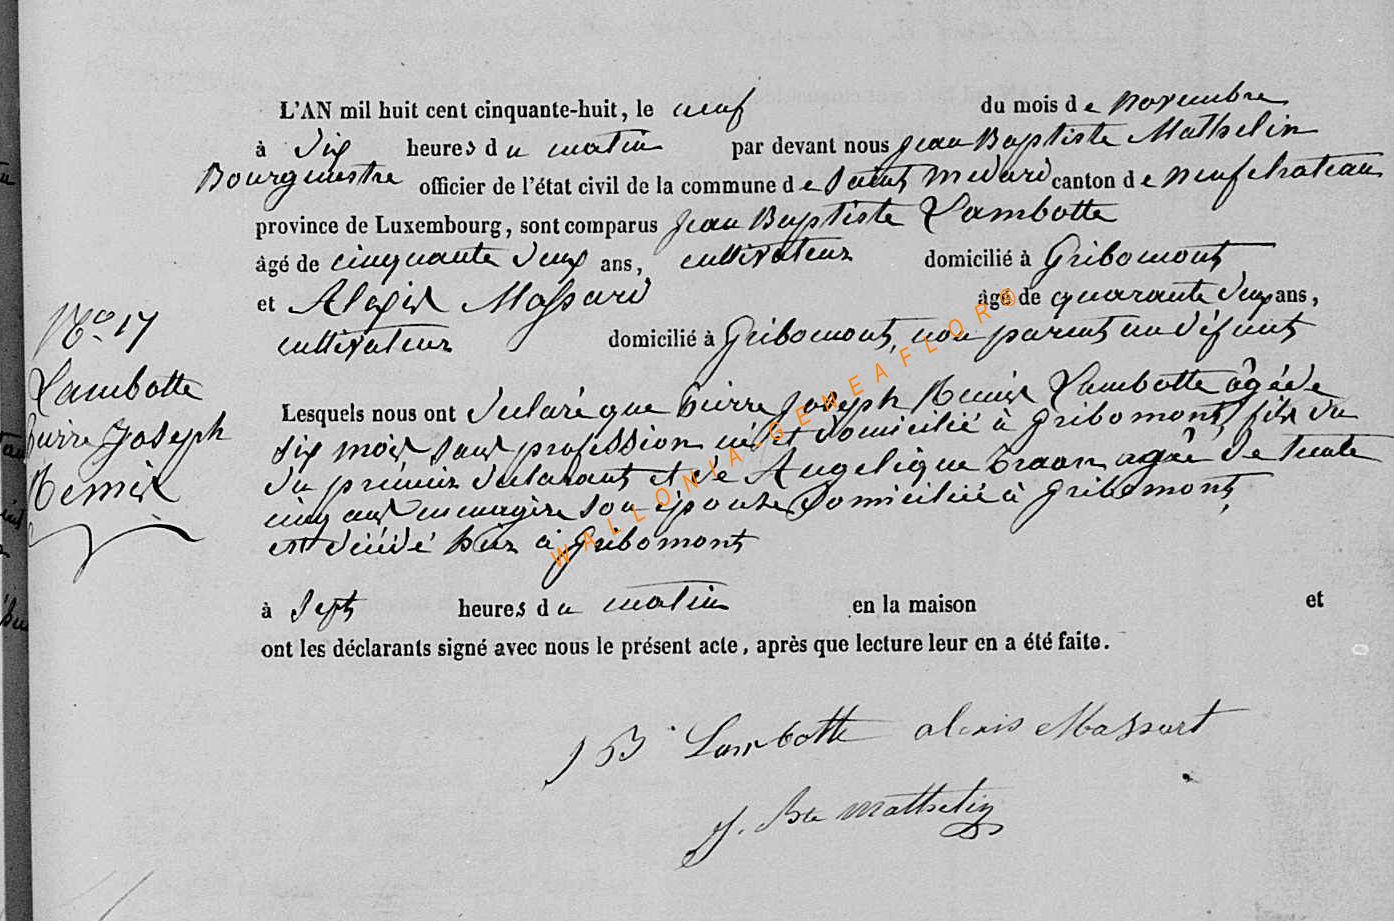 L'AN mil huit cent cinquante-huit, le neuf du mois de novembre
à dix heures du matin par devant nous Jean Baptiste Mathelin
Bourgmestre officier de l'état civil de la commune de Saint Medard canton de neufchateau
province de Luxembourg, sont comparus Jean Baptiste Lambotte
âgé de cinquante deux ans, cultivateur domicilié à Gribomont
et Alexis Massard âgé de quarante deux ans,
cultivateur domicilié à Gribomont, non parent au défunt
No 17
Lambotte
Pierre Joseph
Remis
Lesquels nous ont déclaré que Pierre Joseph Remis Lambotte âgé de
six mois sans profession né et domicilié à Gribomont, fils du
du prémier déclarant et de Angelique agée de trente
cinq ans menagère son épouse domiciliée à Gribomont,
est décédé hier à Gribomont
à Sept heures du matin en la maison et
ont les déclarants signé avec nous le présent acte, après que lecture leur en a été faite.
J B Lambotte alexis Massart
J. Bte Mathelin
WALLONIA.GENEAFLORE